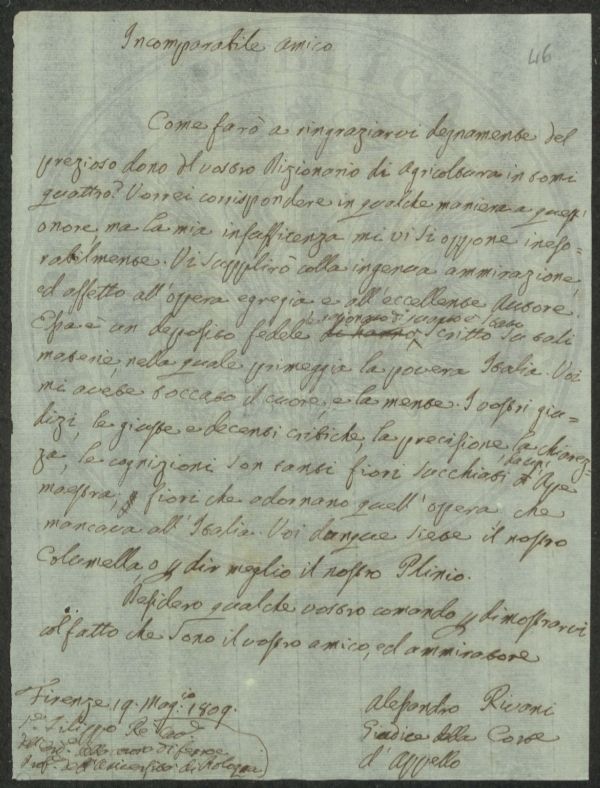 46
Incomparabile Amico
Come farò a ringraziarvi degnamente del
prezioso dono del vostro Dizionario di Agricoltura in tomi
quattro? Vorrei corrispondere in qualche maniera a quest'
onore, ma la mia insufficenza mi vi si oppone ineso-
rabilmente. Vi supplirò colla ingenua ammirazione,
ed affetto all'opera egregia e all'eccellente Autore.
Essa è un deposito fedele scritto su tali
materie, nella quale primeggia la povera Italia. Voi
mi avete toccato il cuore, e la mente. I vostri giu-
dizi, le giuste e decenti critiche, la precisione, la chiarez-
za, le cognizioni son tanti fiori succhiati da un' Ape
maestra, fiori che adornano quell'opera che
mancava all'Italia. Voi dunque siete il nostro
Columella, o p dir meglio il nostro Plinio.
Desidero qualche vostro comando p dimostrarvi
col fatto che sono il vostro amico, ed ammiratore
Firenze 19. Mag.io 1809.
Alessandro Rivani
Giudice della Corte
d'Appello
Filippo Re
Prof. dell'Università di Bologna